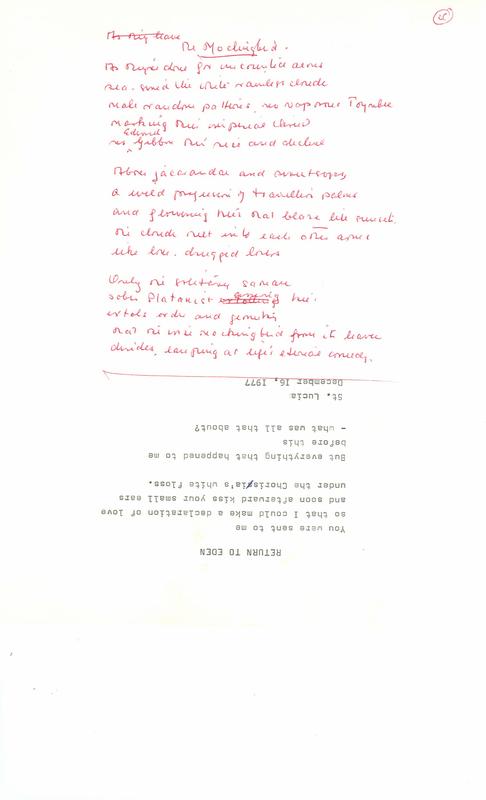 25
The Mockingbird.
As they've done for uncounted aeons
sea-
make random patterns, no vaporous Toynbee
marking their imperial
no Edward Gibbon their rise and decline
Above jacarandas and
a wild procession of travellers palms
and flowering that blaze like sunset.
the clouds melt into each others arms
like love-drugged lovers
Only the solitary saman
sober Platonist
extols order and geometry
that the wise mockingbird from its leaves
derides, laughing at life's eternal comedy.
RETURN TO EDEN
You were sent to me
so that I could make a declaration of love
and soon afterward kiss your small ears
under the Chorisia's white floss.
But everything that happened to me
before this
- what was all that about?
St. Lucia
December 16, 1977